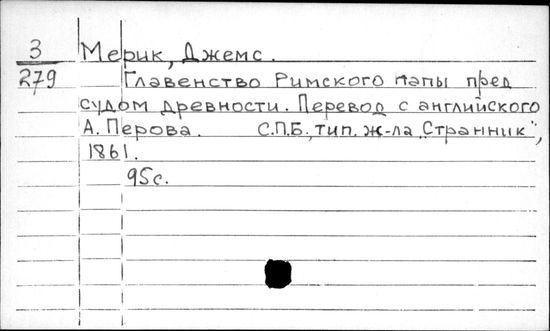 3 Мерик, Джемс.
279 Главенство Римского папы пред
судом древности. Перевод с английского
А. Перова. С.П.Б., тип. ж-ла „Странник",
1861.
95с.